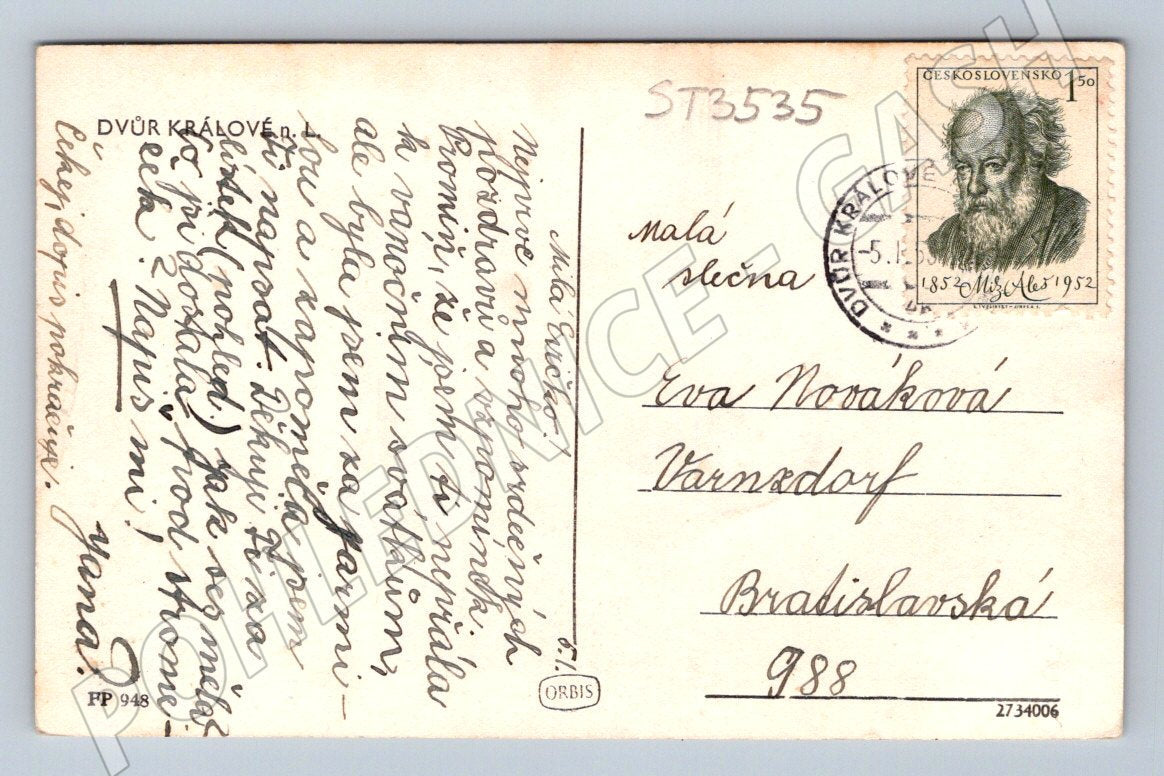 DVŮR KRÁLOVÉ n. L.
ST3535
ČESKOSLOVENSKO
1 50
1852 Mik. Aleš 1952
DVŮR KRÁLOVÉ
-5.I.5
Malá
slečna
Eva Nováková
Varnsdorf
Bratislavská
988
2734006
ORBIS
FP 948
5.1.
Milá Evičko!
Nejprve mnoho srdečných
pozdravů a vzpomínek.
Promiň, že jsem ti nepřála
k vanočním svátkům,
ale byla jsem za
bou a zapoměla jsem
ti napsat. Děkuji Ti za
lístek (pohled.) Jak ses měla?
Co jsi dostala pod strome-
ček? Napiš mi!
Jana.
Čekej, dopis pokračuje.
POHLEDNICE - GASH